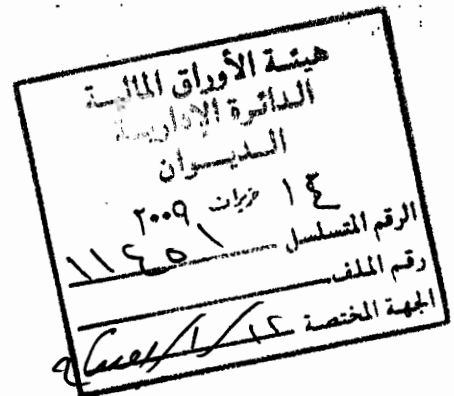 هيئة الأوراق المالية
الدائرة الإدارية
الديوان
١٤ حزيران ٢٠٠٩
الرقم المتسلسل ١١٤٥١
رقم الملف
الجهة المختصة